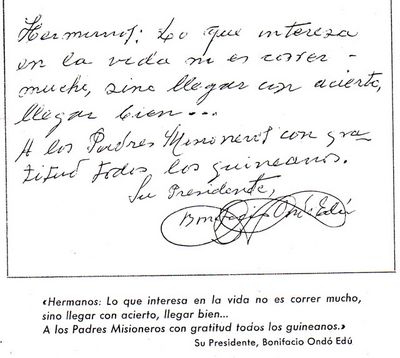 Hermanos: Lo que interesa
en la vida no es correr
mucho, sino llegar con acierto,
llegar bien...
A los Padres Misioneros con gra-
titud todos los guineanos.
Su Presidente,
Bonifacio Ondó Edú
«Hermanos: Lo que interesa en la vida no es correr mucho,
sino llegar con acierto, llegar bien...
A los Padres Misioneros con gratitud todos los guineanos.»
Su Presidente, Bonifacio Ondó Edú